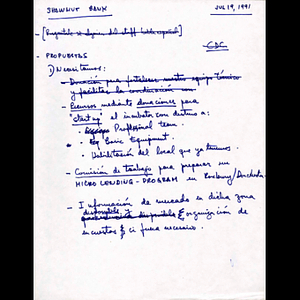 JHOWHUT BRUX JUL 19, 1991
- [Requisitos de staff
CDC
- PROPUESTAS
1) Necesitamos:
- Donación para fortalecer nuestro equipo técnico
y facilitar la coordinación
- Recursos mediante donaciones para
"start up" el incubator con destino a:
• Professional team.
• Basic Equipment.
• Habilitación del local que ya tenemos.
- Comisión de trabajo para preparar un
MICRO LENDING - PROGRAM en Roxbury/Dorchester
- Información de mercado en dicha zona
disponible, y/o organización de
encuestas si fuera necesario.